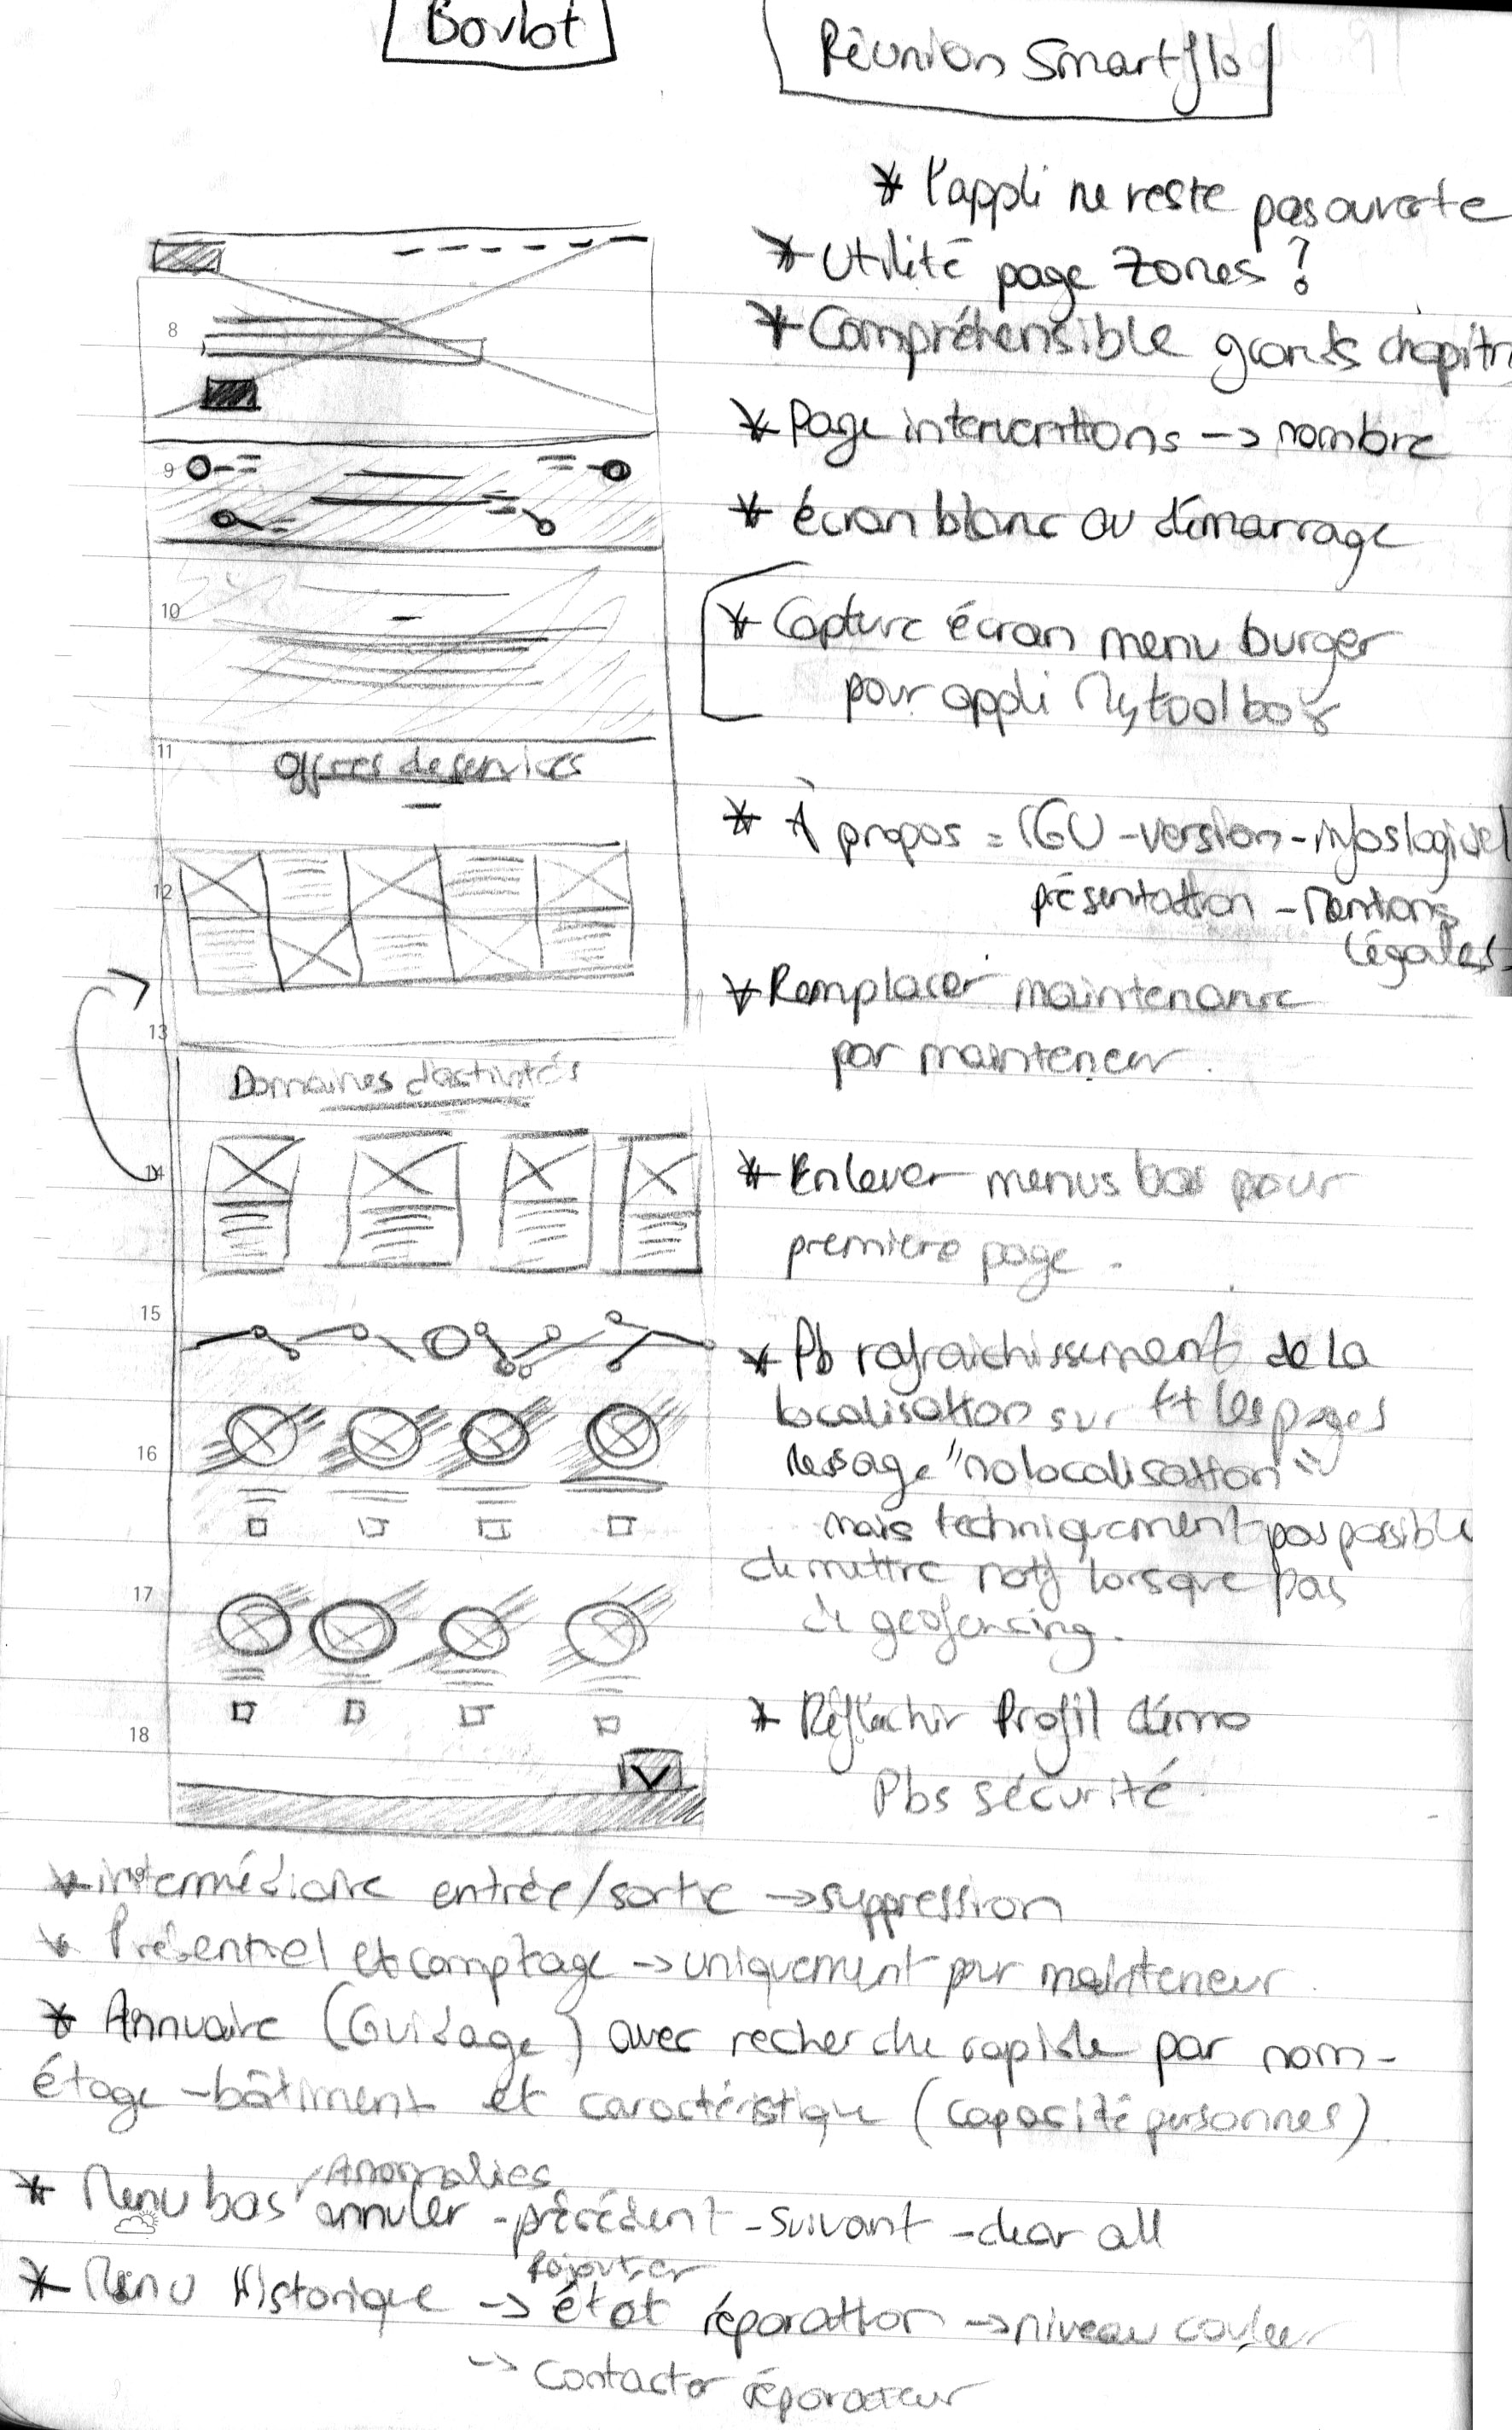 Boulot
Réunion Smartflo
* l'appli ne reste pas ouverte
* Utilité page Zones ?
* Compréhensible grands chapitr
* Page interventions -> nombre
* écran blanc au démarrage
* Capture écran menu burger
pour appli Mytoolbox
* À propos = CGU - version - infos logiciel
présentation - Mentions
Légales
* Remplacer maintenance
par mainteneur.
* Enlever menus bas pour
premiere page.
* Pb rafraichissement de la
localisation sur tt les pages
Message "no localisation"
mais techniquement pas possible
de mettre notif lorsque pas
de geofencing.
* Réfléchir Profil démo
Pbs sécurité
8
9
10
11
Offres de services
12
13
Domaines d'activités
14
15
16
17
18
19
* intermédiaire entrée/sortie -> suppression
* Présentiel et comptage -> uniquement pour mainteneur.
* Annuaire (Guidage) avec recherche rapide par nom -
étage - bâtiment et caractéristique (capacité personnes)
Anomalies
* Menu bas annuler - précédent - suivant - clear all
Rajouter
* Menu Historique -> état réparation -> niveau couleur
-> Contacter réparateur